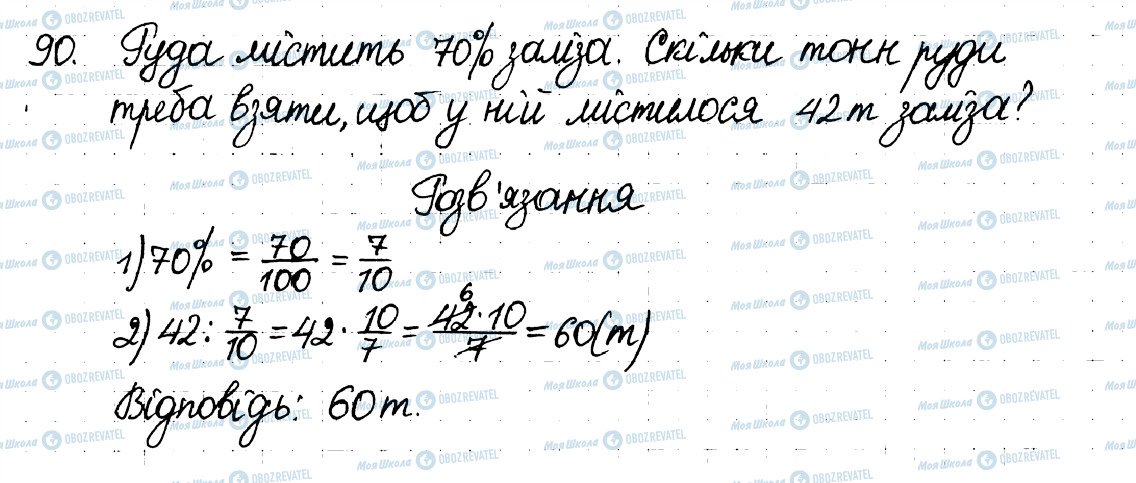 90. Руда містить 70% заліза. Скільки тонн руди
треба взяти, щоб у ній містилося 42 т заліза?
Розв'язання
1) 70% = 70/100 = 7/10
2) 42 : 7/10 = 42 · 10/7 = 42·10/7 = 60(т)
6
Відповідь: 60 т.
Моя Школа OBOZREVATEL